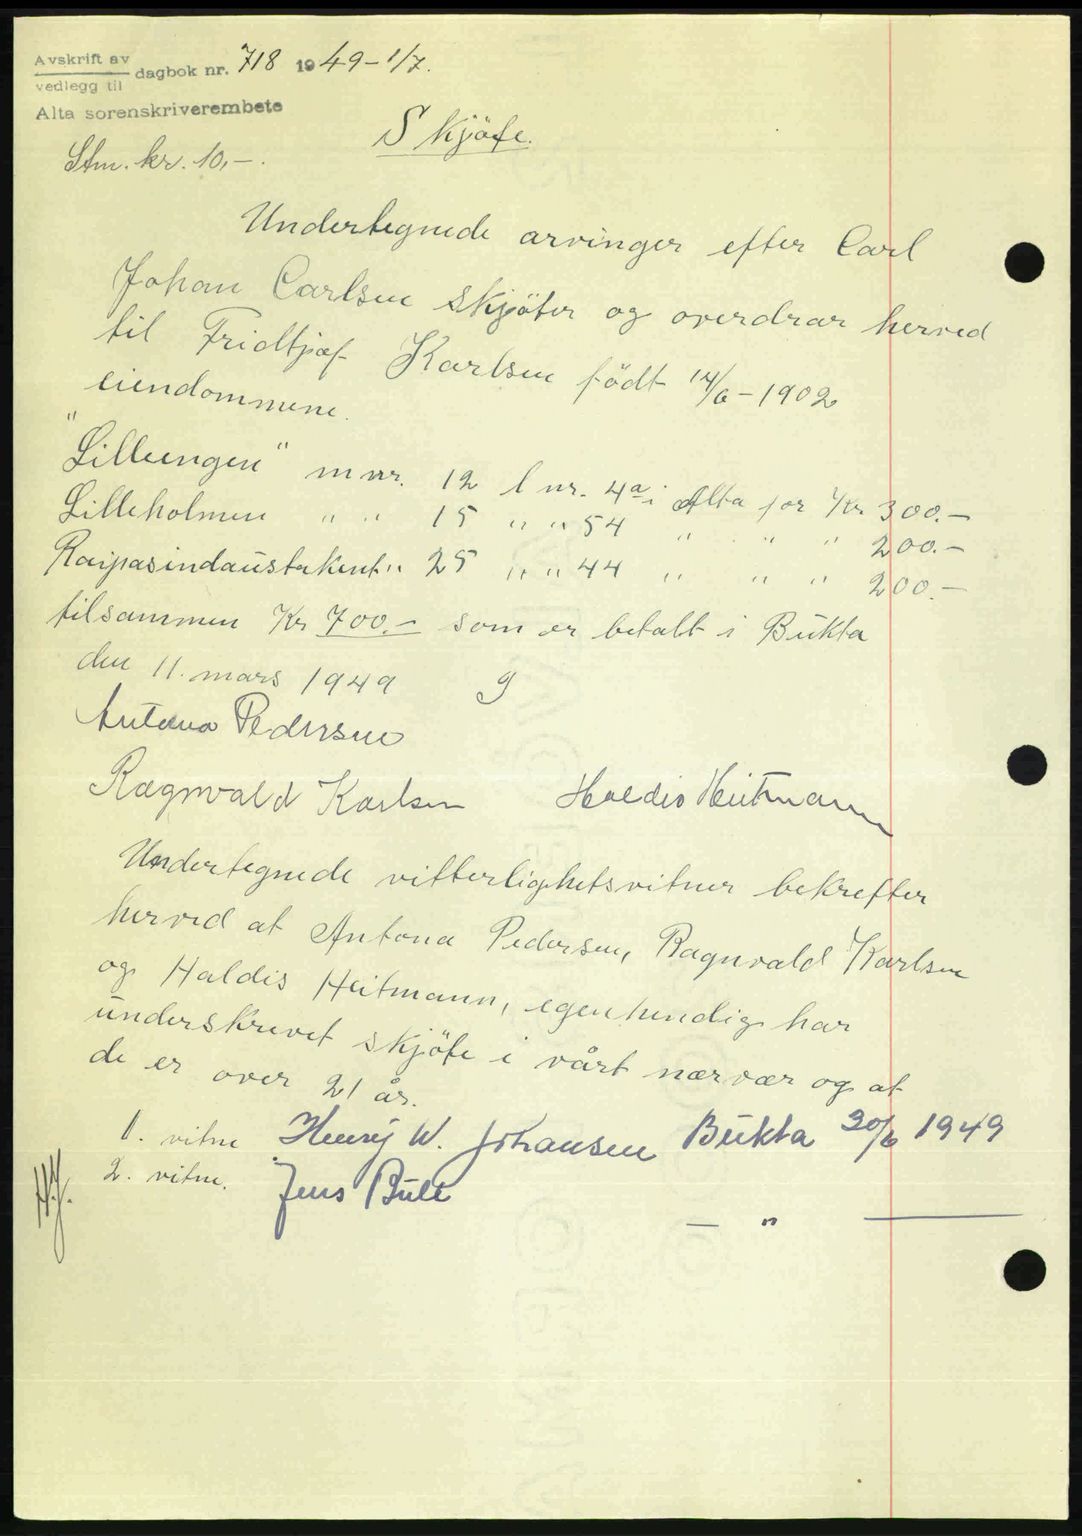 Avskrift av
vedlegg til
dagbok nr. 718 1949 - 1/7.
Alta sorenskriverembete
Stm. kr. 10,-.
Skjöte.
Undertegnede arvinger efter Carl
Johan Carlsen skjöter og overdrar herved
til Fridtjof Karlsen födt 14/6 - 1902
eiendommene.
"Lilleengen" m nr. 12 l nr. 4a i Alta for Kr 300.-
Lilleholmen " " 15 " " 54 " " " 200.-
Raipasindaustaket " 25 " " 44 " " " 200.-
tilsammen Kr 700.- som er betalt i Bukta
den 11. mars 1949
Antona Pedersen
Ragnvald Karlsen Haldis Heitmann
Undertegnede vitterlighetsvitner bekrefter
herved at Antona Pedersen, Ragnvald Karlsen
og Haldis Heitmann, egenhendig har
underskrevet skjöte i vårt nærvær og at
de er over 21 år.
1. vitne Henrij W. Johansen Bukta 30/6 1949
2. vitne. Jens Bull
— " —
H.J.